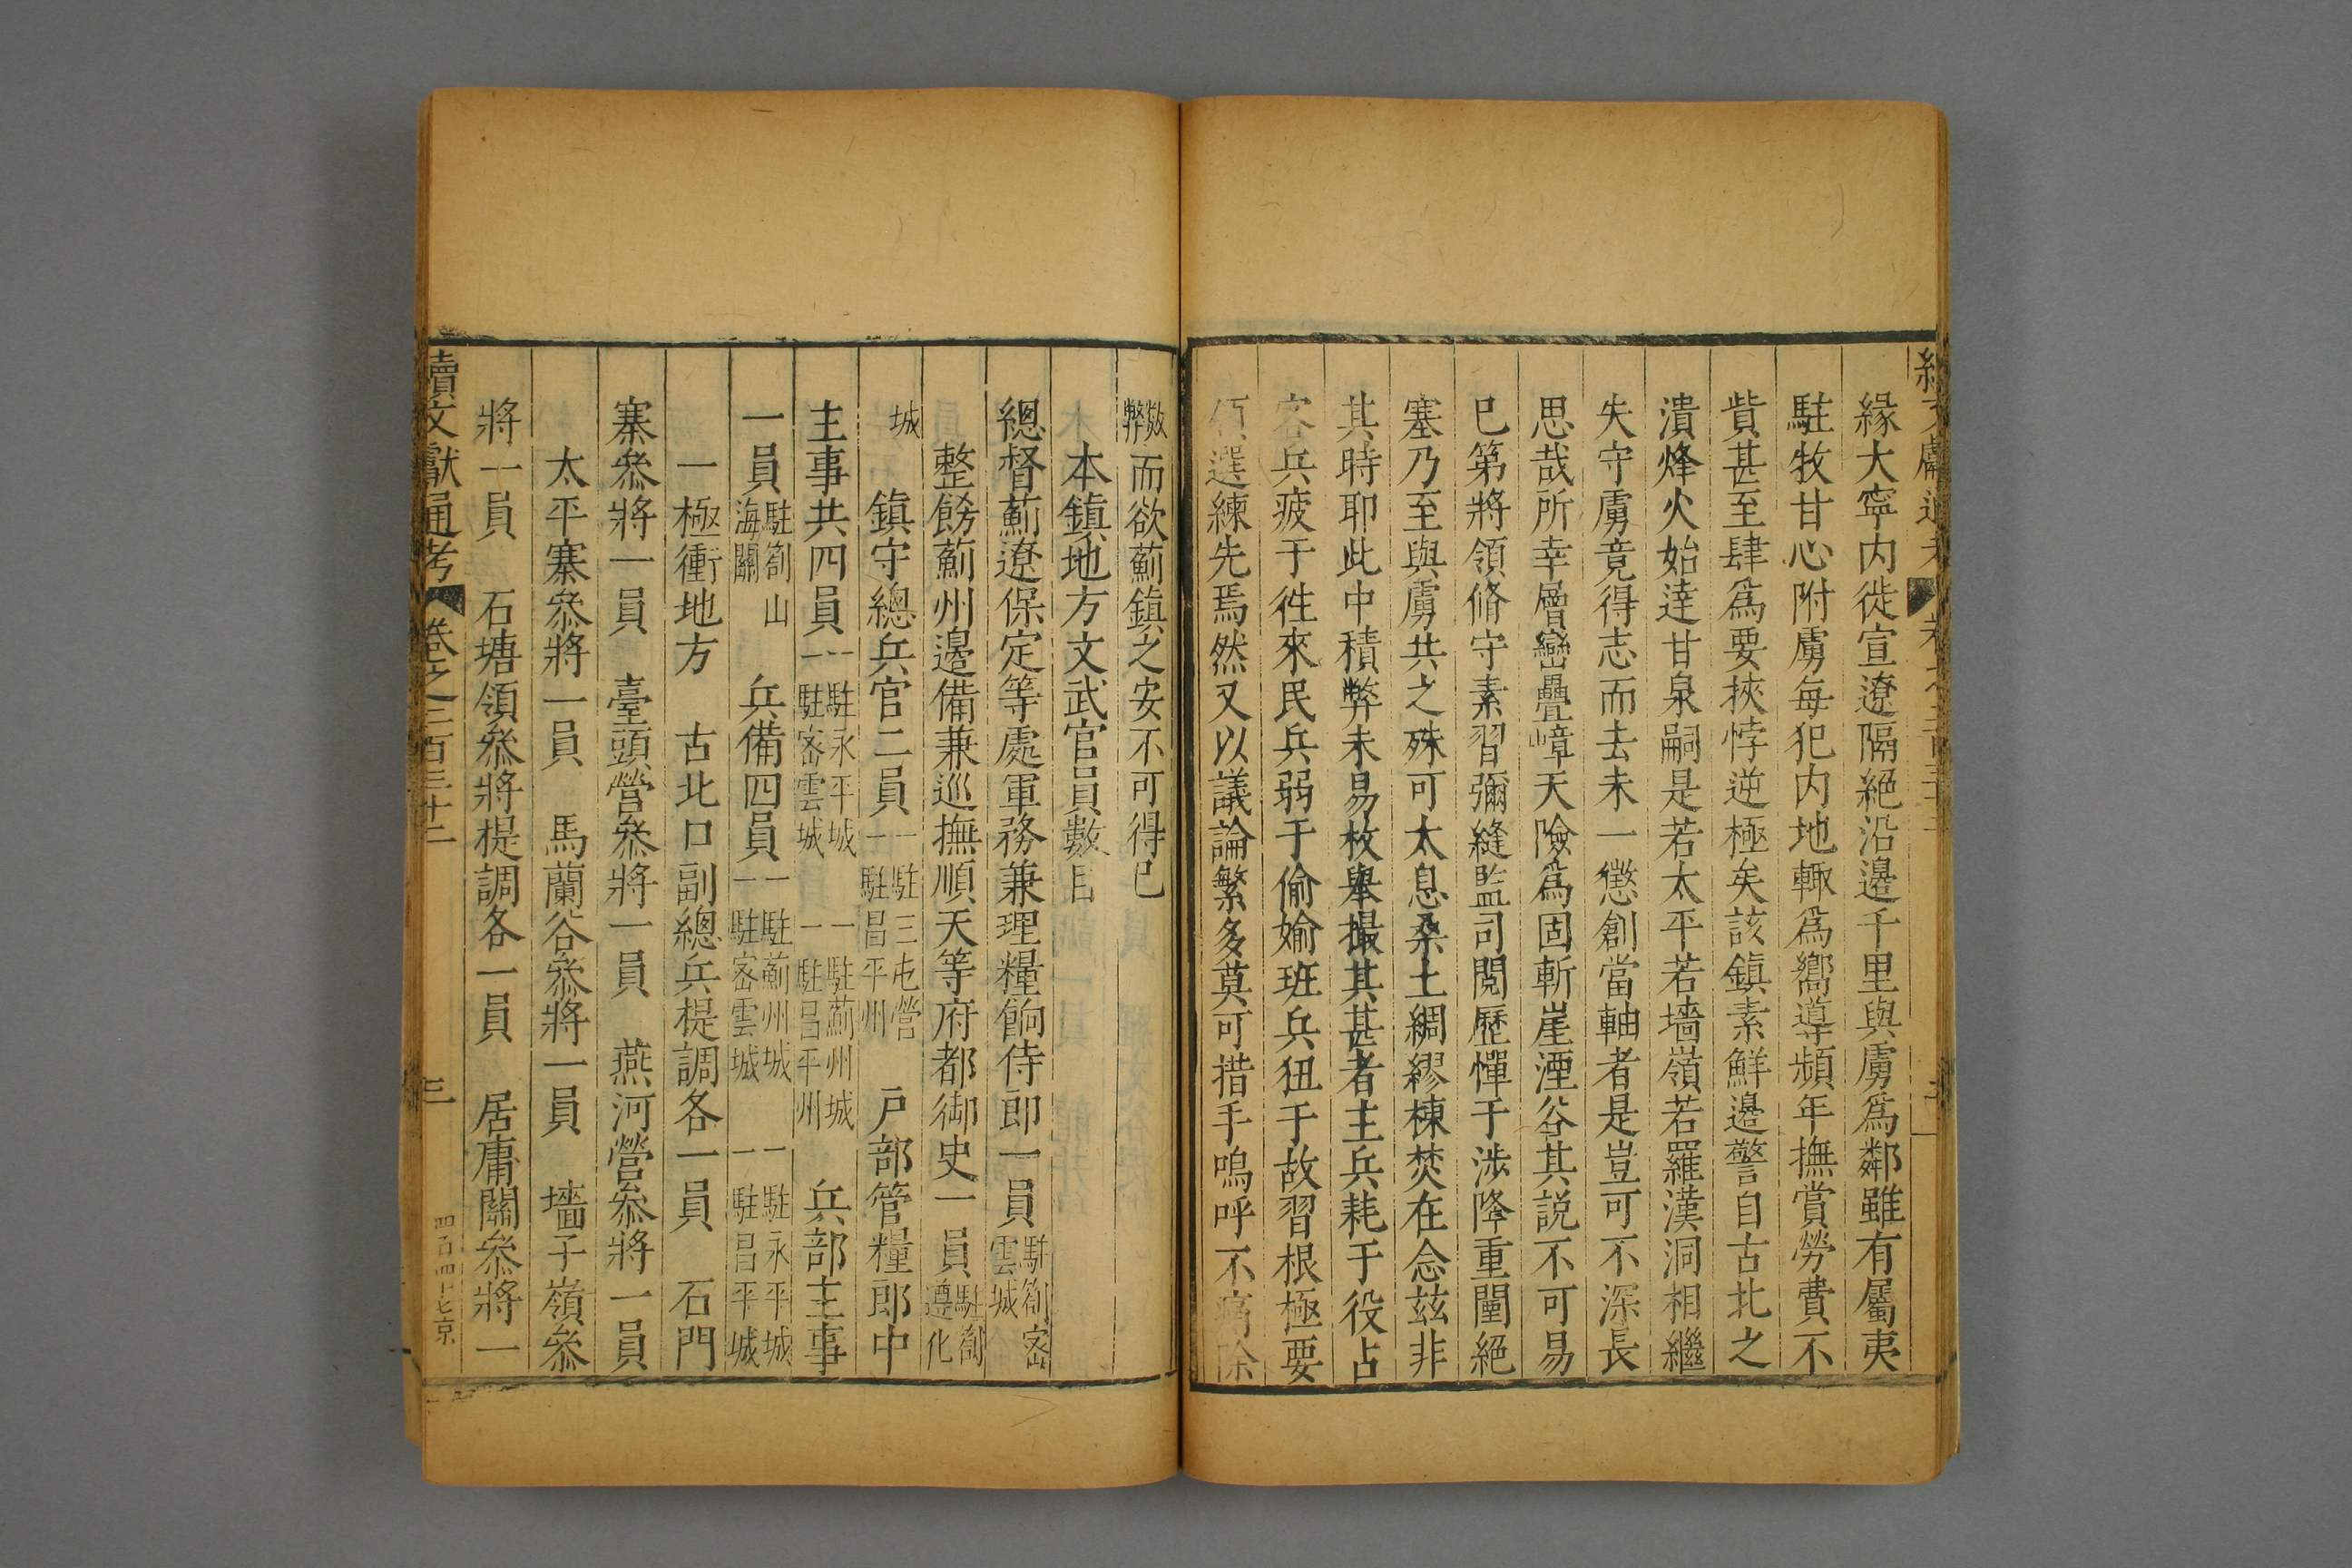 緣大寧内徙宣遼隔絕沿邊千里與虜爲鄰雖有屬夷
駐牧甘心附虜每犯内地輙爲嚮導頻年撫賞勞費不
貲甚至肆爲要挾悖逆極矣該鎮素鮮邊警自古北之
潰烽火始達甘泉嗣是若太平若墻嶺若羅漢洞相繼
失守虜竟得志而去未一懲創當軸者是豈可不深長
思哉所幸層巒疊嶂天險爲固斬崖湮谷其説不可易
已第將領脩守素習彌縫監司閲歷憚于涉降重闉絕
塞乃至與虜共之殊可太息桑土綢繆棟焚在念茲非
其時耶此中積弊未易枚舉撮其甚者主兵耗于役占
客兵疲于徃來民兵弱于偷婾班兵狃于故習根極要
領選練先焉然又以議論繁多莫可措手嗚呼不痛除
數弊而欲薊鎮之安不可得已
本鎮地方文武官員數目
總督薊遼保定等處軍務兼理糧餉侍郎一員駐劄密雲城
整飭薊州邊備兼巡撫順天等府都御史一員駐劄遵化
城　鎮守總兵官二員一駐三屯營一駐昌平州　戸部管糧郎中
主事共四員一駐永平城一駐密雲城一駐薊州城一駐昌平州　兵部主事
一員駐劄山海關　兵備四員一駐薊州城一駐密雲城一駐永平城一駐昌平城
一極衝地方　古北口副總兵提調各一員　石門
寨叅將一員　臺頭營叅將一員　燕河營叅將一員
太平寨叅將一員　馬蘭谷叅將一員　墻子嶺叅
將一員　石塘領叅將提調各一員　居庸關叅將一
續文獻通考　卷之二百三十二　三